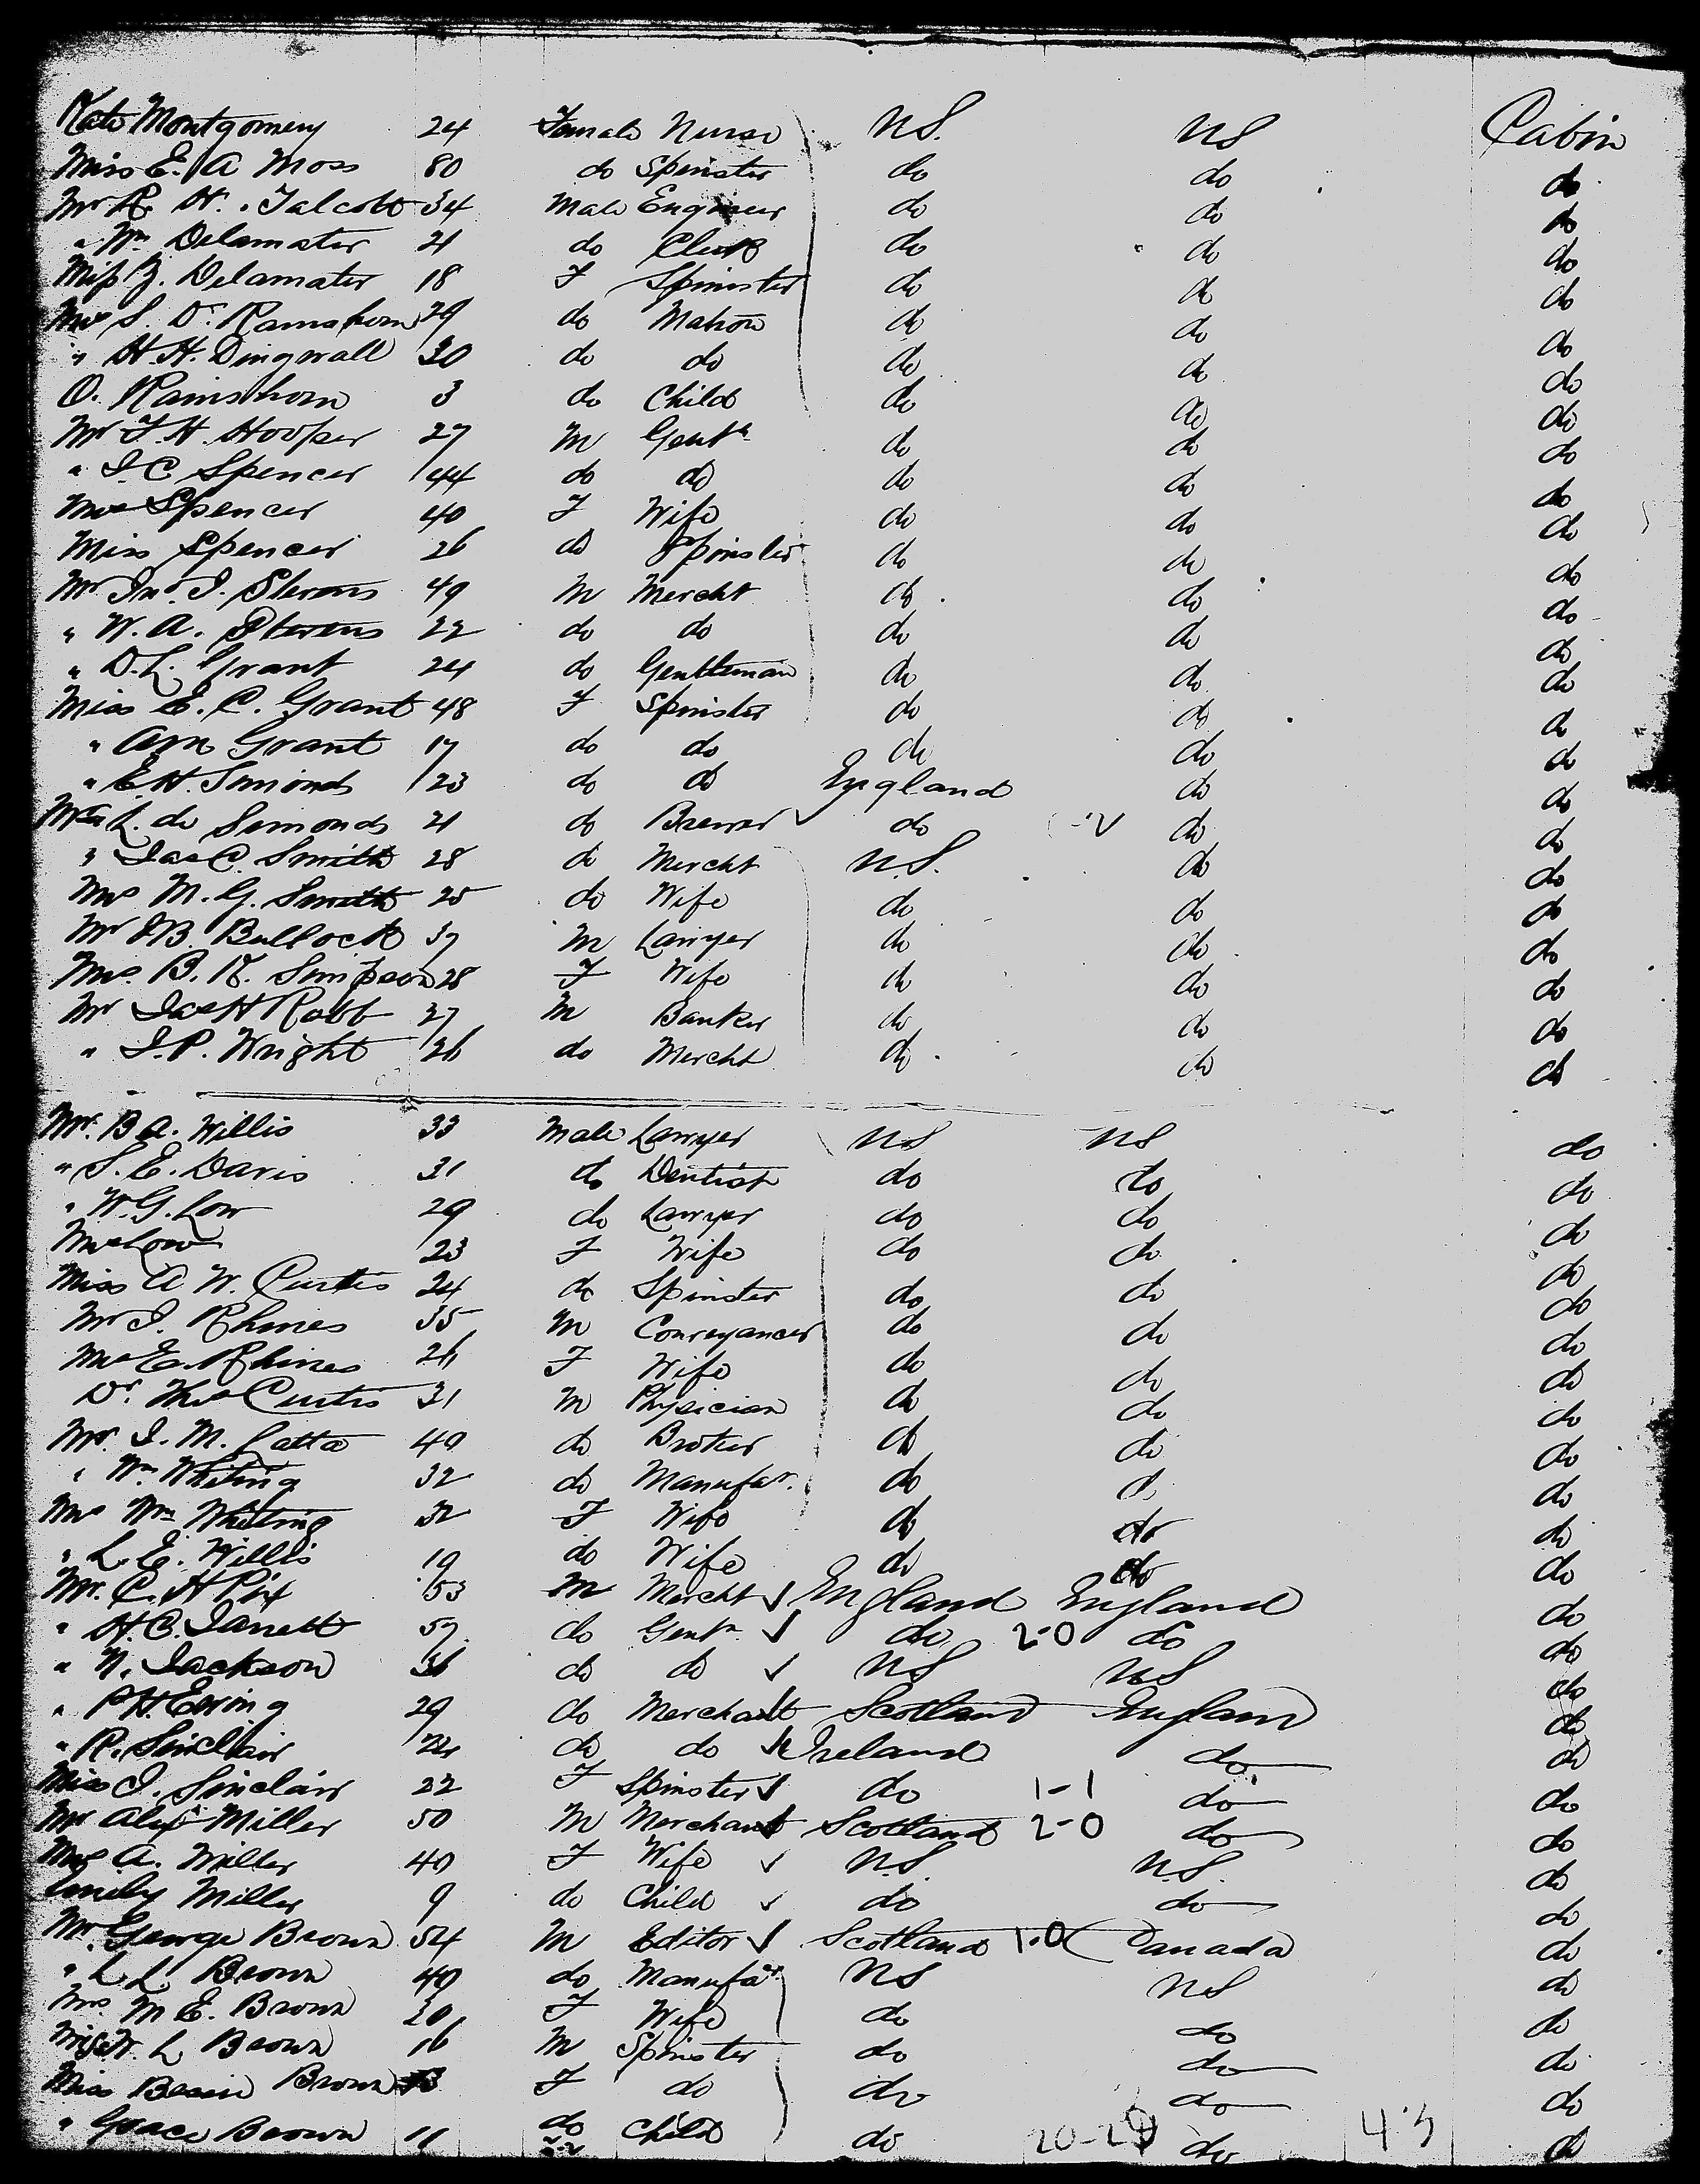 Kate Montgomery 24 Female Nurse U.S. U.S. Cabin
Miss E. A Moss 80 do Spinster do do do
Mr R H. Talcott 34 Male Engineer do do do
" Wm Delamater 21 do Clerk do do do
Miss Z. Delamater 18 F Spinster do do do
Mrs S. D. 29 do Matron do do do
" H.H. Dingwall 30 do do do do do
O. Ramshorn 3 do Child do do do
Mr F. H. Hooper 27 M Gentn do do do
" J C Spencer 44 do do do do do
Mrs Spencer 40 F Wife do do do
Miss Spencer 26 do Spinster do do do
Mr Jno. J. Stevens 49 M Mercht do do do
" W. A. Stevens 22 do do do do do
" D. L. Grant 24 do Gentleman do do do
Miss E. C. Grant 48 F Spinster do do do
" Grant 17 do do do do do
" E H. Simonds 23 do do England do do
L. de Simonds 21 do Brewer do do do
" Jas C. Smith 28 do Mercht U.S. do do
Mrs M. G. Smith 25 do Wife do do do
Mr J B. Bullock 37 M Lawyer do do do
Mrs. B. K. Simpson 28 F Wife do do do
Mr Jas H Robb 27 M Banker do do do
" J. P. Wright 26 do Mercht do do do
Mr. B A. Willis 33 Male Lawyer U S U S do
" S. E. Davis 31 do Dentist do do do
" W. G. Low 29 do Lawyer do do do
Mrs Low 23 F Wife do do do
Miss A W. Curtis 24 do Spinster do do do
Mr J. Rhines 35 M Conveyancer do do do
Mrs E. Rhines 26 F Wife do do do
Dr. Thos Curtis 31 M Physician do do do
Mr. J. M. Latta 49 do Broker do do do
" Wm Whiting 32 do Manufar. do do do
Mrs Wm Whiting 32 F Wife do do do
" L. E. Willis 19 do Wife do do do
Mr. C. H Pix 53 M Mercht England England do
" H. C. Jarrett 57 do Gentn. do 2-0 do do
" N. Jackson 36 do do U S U S do
" P H Ewing 29 do Merchant Scotland England do
" R. Sinclair 24 do do Ireland do do
Miss J. Sinclair 22 F Spinster do 1-1 do do
Mr Alex Miller 50 M Merchant Scotland 2-0 do do
Mrs A. Miller 40 F Wife U.S. U.S. do
Emily Miller 9 do Child do do do
Mr. George Brown 54 M Editor Scotland 1-0 Canada do
" L. L. Brown 49 do Manufar U S U S do
Mrs. M E. Brown 20 F Wife do do do
W. L Brown 16 M Spinster do do do
Miss Bessie Brown F do do do do
" Grace Brown 11 do Child do 20-29 do 4-5 do